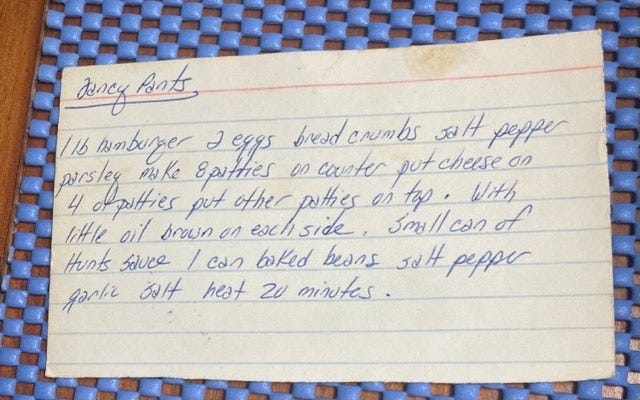 Fancy Pants
1 lb hamburger 2 eggs bread crumbs salt pepper
parsley make 8 patties on counter put cheese on
4 of patties put other patties on top. With
little oil brown on each side. Small can of
Hunts sauce 1 can baked beans salt pepper
garlic salt heat 20 minutes.